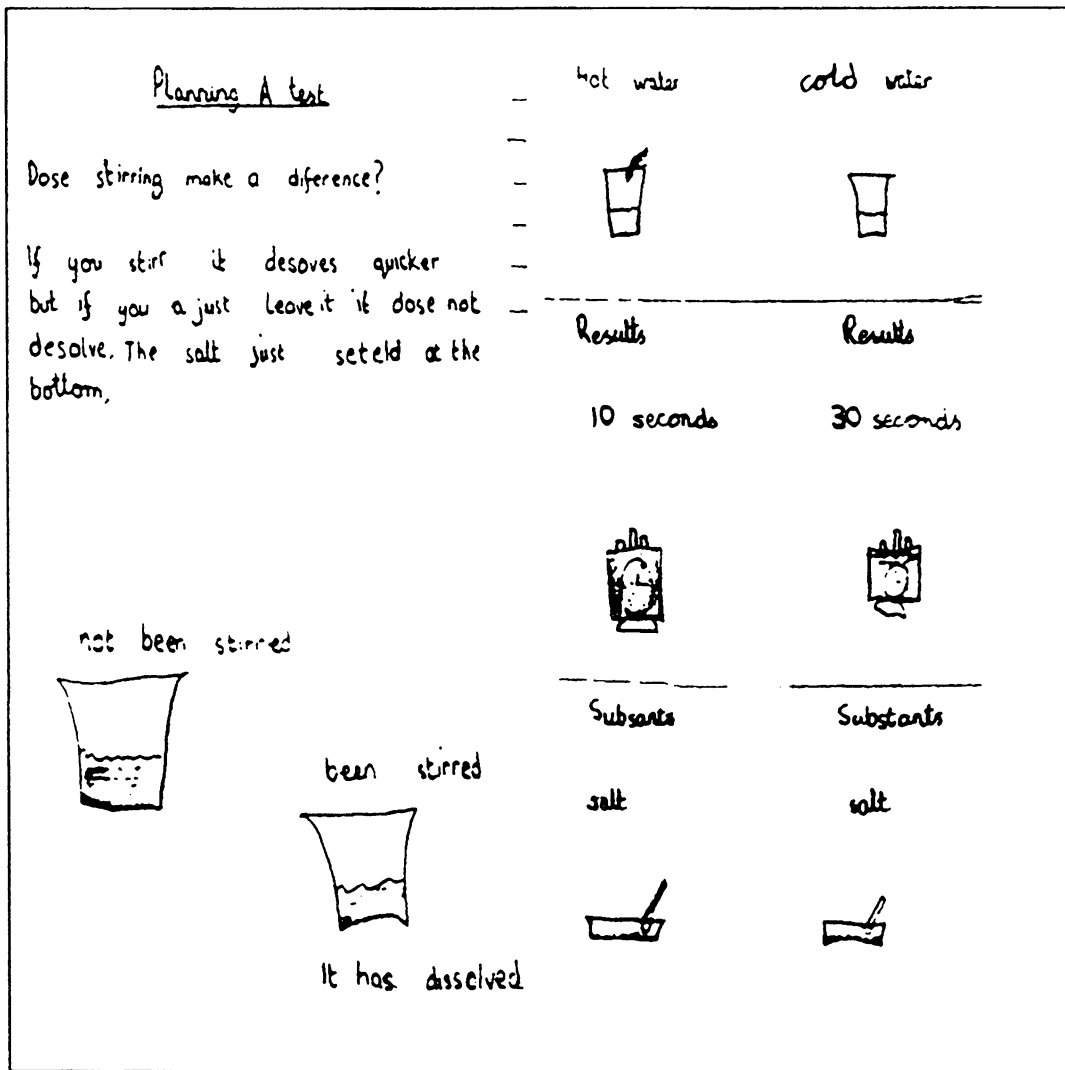 Planning A test
Dose stirring make a diference?
If you stirr it desoves quicker
but if you a just leave it it dose not
desolve. The salt just seteld at the
bottom,
not been stirred
been stirred
It has dissolved
hot water cold water
Results Results
10 seconds 30 seconds
Subsants Substants
salt salt